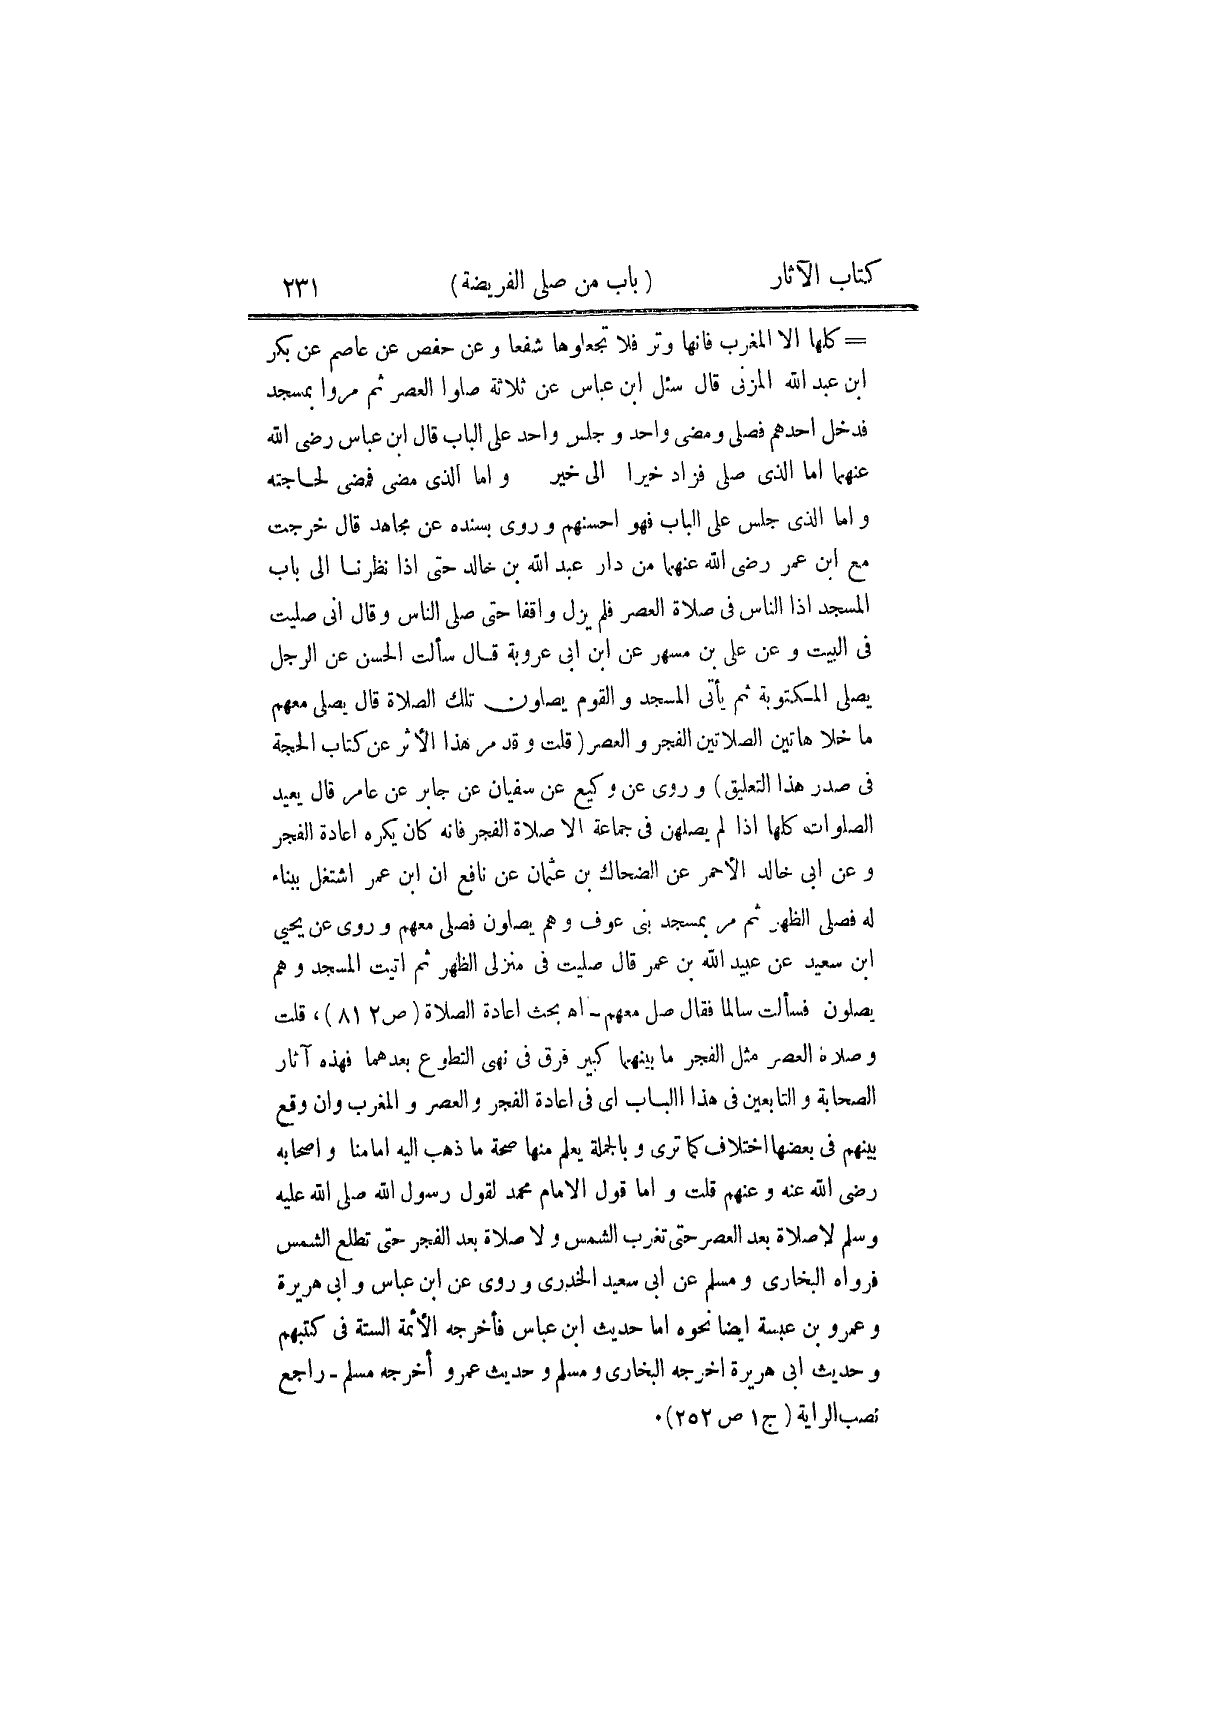 كتاب الآثار (باب من صلى الفريضة) ٢٣١
= كلها الا المغرب فانها وتر فلا تجعلوها شفعا و عن حفص عن عاصم عن بكر
ابن عبد الله المزنى قال سئل ابن عباس عن ثلاثة صلوا العصر ثم مروا بمسجد
فدخل احدهم فصلى ومضى واحد و جلس واحد على الباب قال ابن عباس رضى الله
عنهما اما الذى صلى فزاد خيرا الى خير و اما الذى مضى فمضى لحاجته
و اما الذى جلس على الباب فهو احسنهم و روى بسنده عن مجاهد قال خرجت
مع ابن عمر رضى الله عنهما من دار عبد الله بن خالد حتى اذا نظرنا الى باب
المسجد اذا الناس فى صلاة العصر فلم يزل واقفا حتى صلى الناس و قال انى صليت
فى البيت و عن على بن مسهر عن ابن ابى عروبة قال سألت الحسن عن الرجل
يصلى المكتوبة ثم يأتى المسجد و القوم يصلون تلك الصلاة قال يصلى معهم
ما خلا هاتين الصلاتين الفجر و العصر (قلت و قد مر هذا الأثر عن كتاب الحجة
فى صدر هذا التعليق) و روى عن وكيع عن سفيان عن جابر عن عامر قال يعيد
الصلوات كلها اذا لم يصلهن فى جماعة الا صلاة الفجر فانه كان يكره اعادة الفجر
و عن ابى خالد الأحمر عن الضحاك بن عثمان عن نافع ان ابن عمر اشتغل ببناء
له فصلى الظهر ثم مر بمسجد بنى عوف و هم يصلون فصلى معهم و روى عن يحيى
ابن سعيد عن عبيد الله بن عمر قال صليت فى منزلى الظهر ثم اتيت المسجد و هم
يصلون فسألت سالما فقال صل معهم ـ اه بحث اعادة الصلاة (ص ٨١٢)، قلت
و صلاة العصر مثل الفجر ما بينهما كبير فرق فى نهى التطوع بعدهما فهذه آثار
الصحابة و التابعين فى هذا االباب اى فى اعادة الفجر و العصر و المغرب وان وقع
بينهم فى بعضها اختلاف كما ترى و بالجملة يعلم منها صحة ما ذهب اليه امامنا و اصحابه
رضى الله عنه و عنهم قلت و اما قول الامام محمد لقول رسول الله صلى الله عليه
وسلم لاصلاة بعد العصر حتى تغرب الشمس و لا صلاة بعد الفجر حتى تطلع الشمس
فرواه البخارى و مسلم عن ابى سعيد الخدرى و روى عن ابن عباس و ابى هريرة
و عمرو بن عبسة ايضا نحوه اما حديث ابن عباس فأخرجه الأئمة الستة فى كتبهم
و حديث ابى هريرة اخرجه البخارى و مسلم و حديث عمرو أخرجه مسلم ـ راجع
نصب الراية (ج ١ ص ٢٥٢)٠